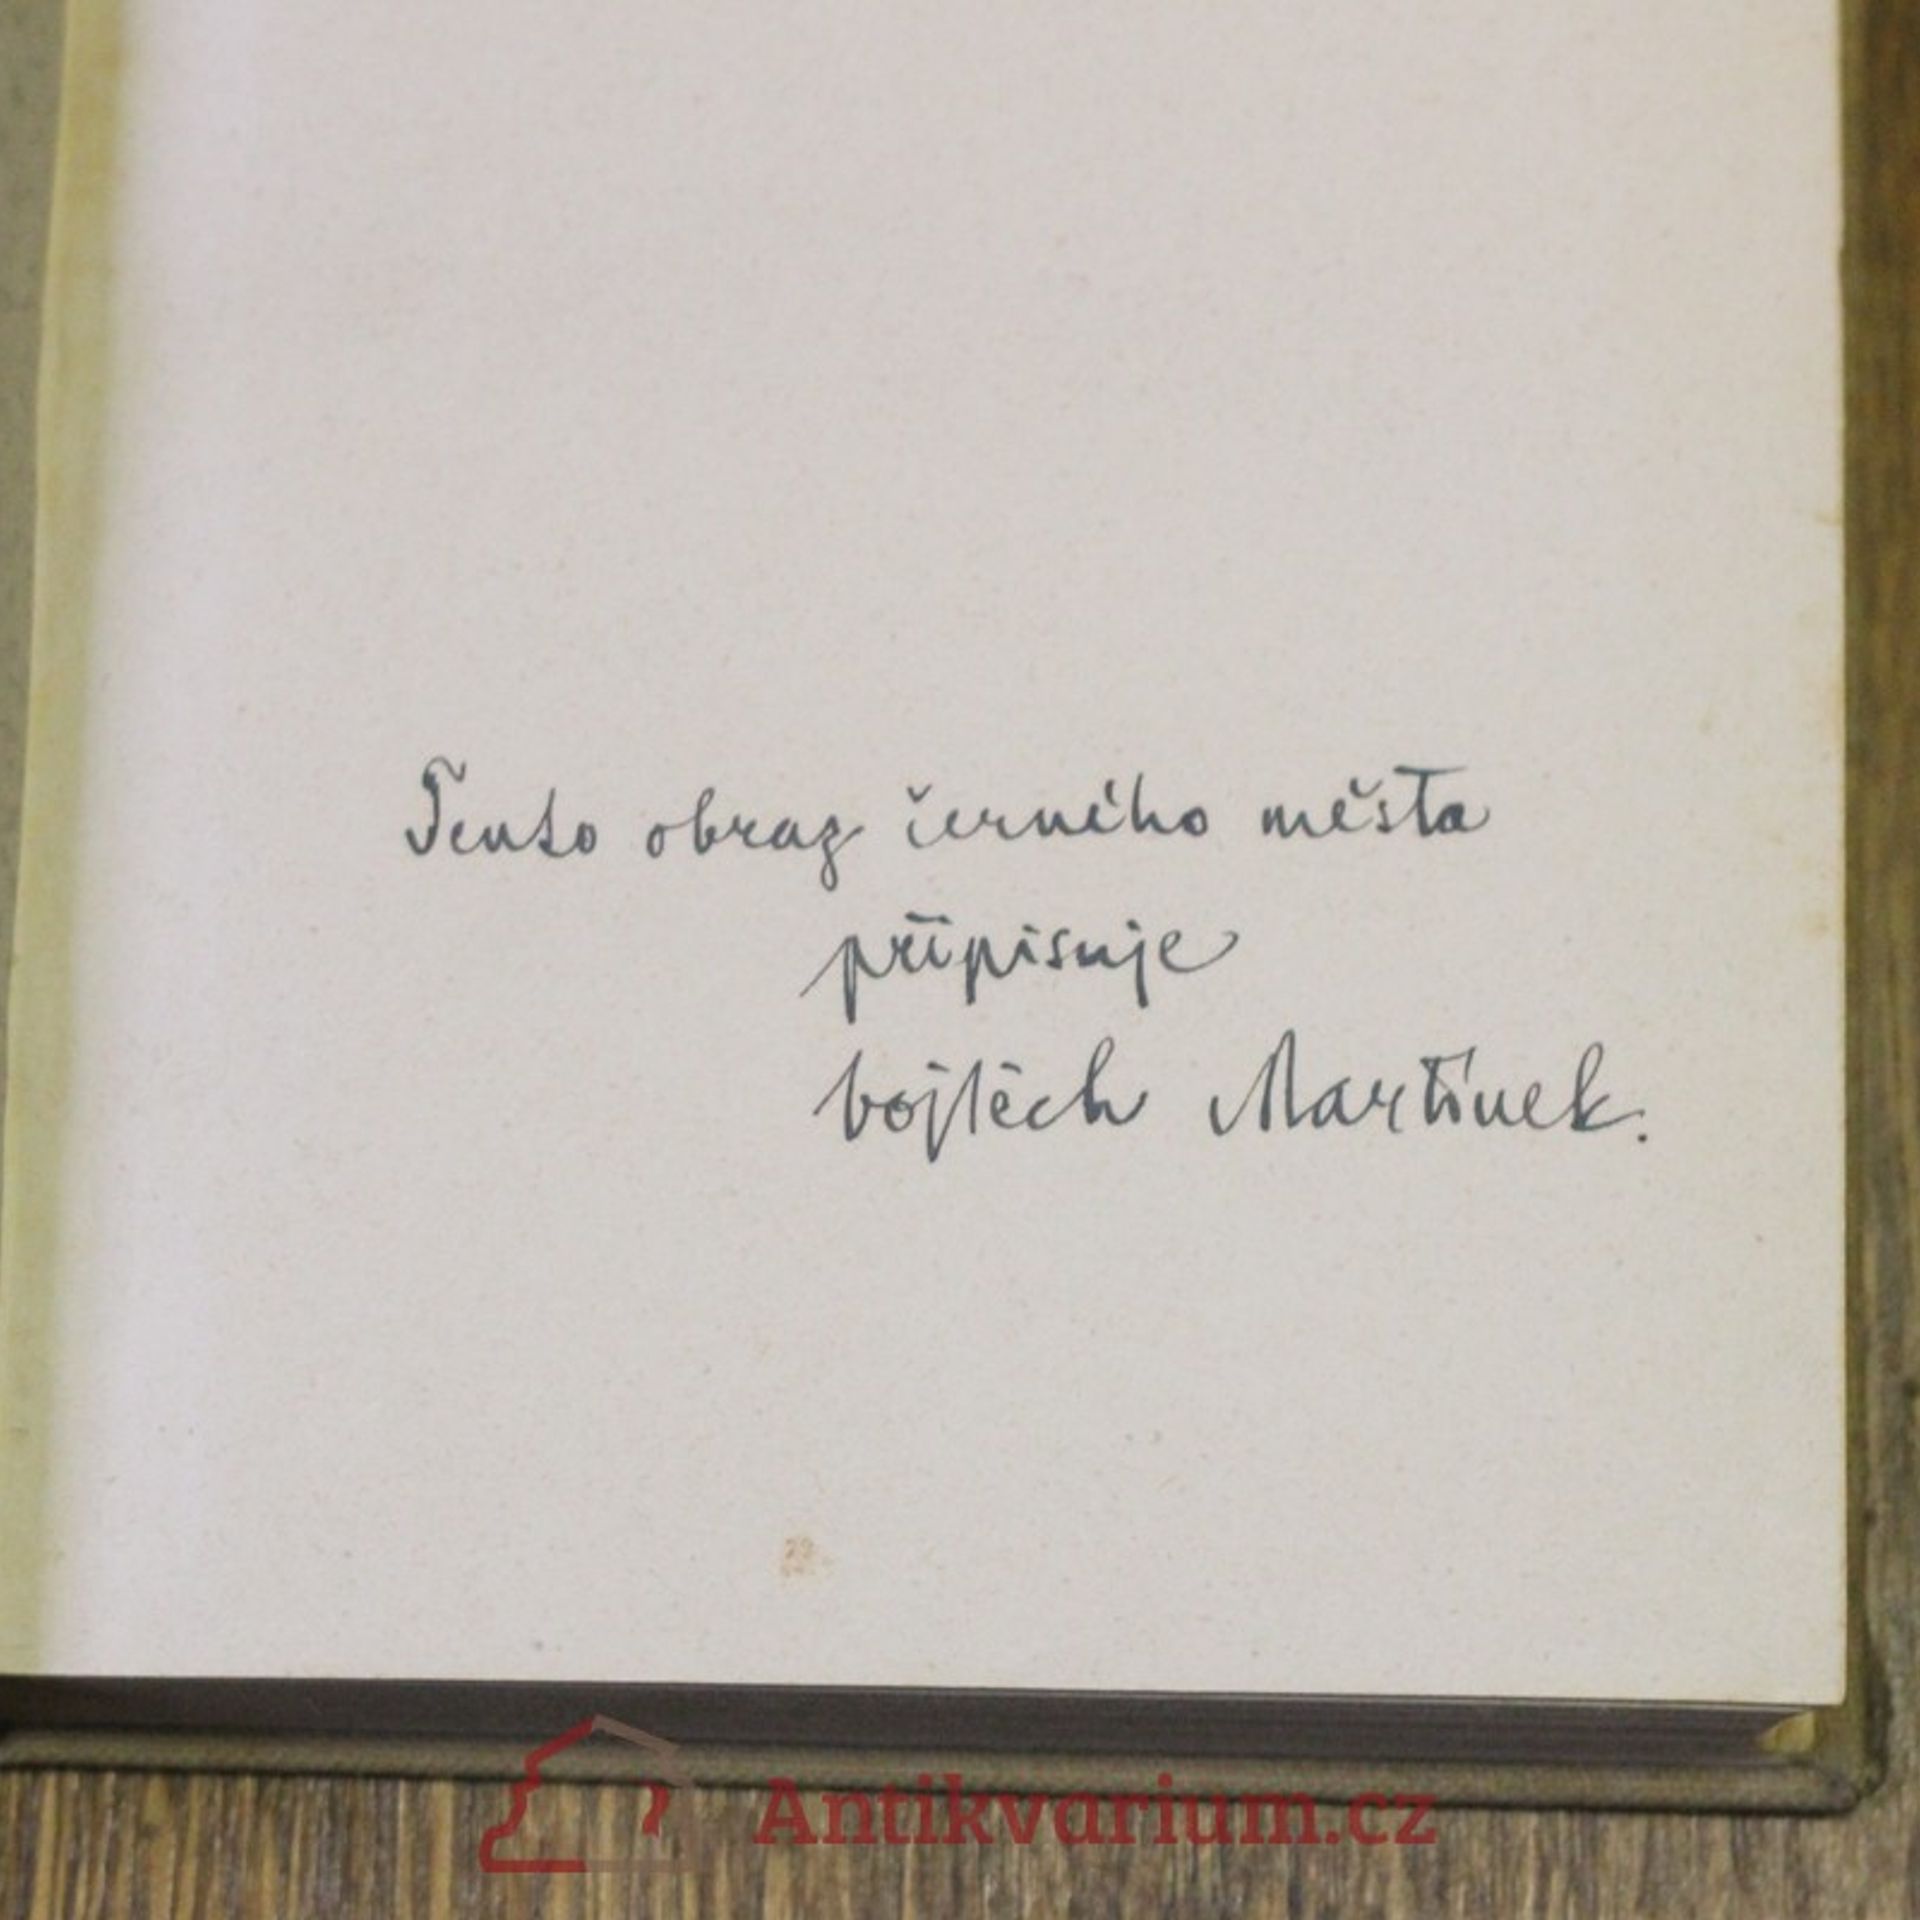 Tento obraz černého města
připisuje
Vojtěch Martínek.
Antikvarium.cz